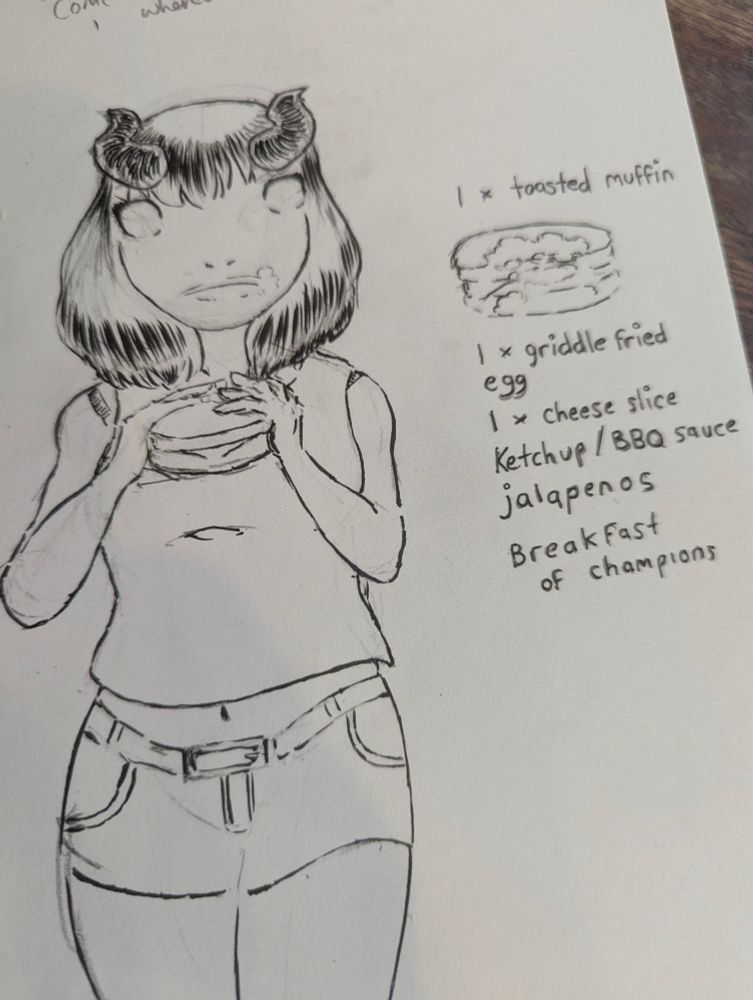 1 x toasted muffin
1 x griddle fried
egg
1 x cheese slice
Ketchup/BBQ sauce
jalapenos
Breakfast
of champions